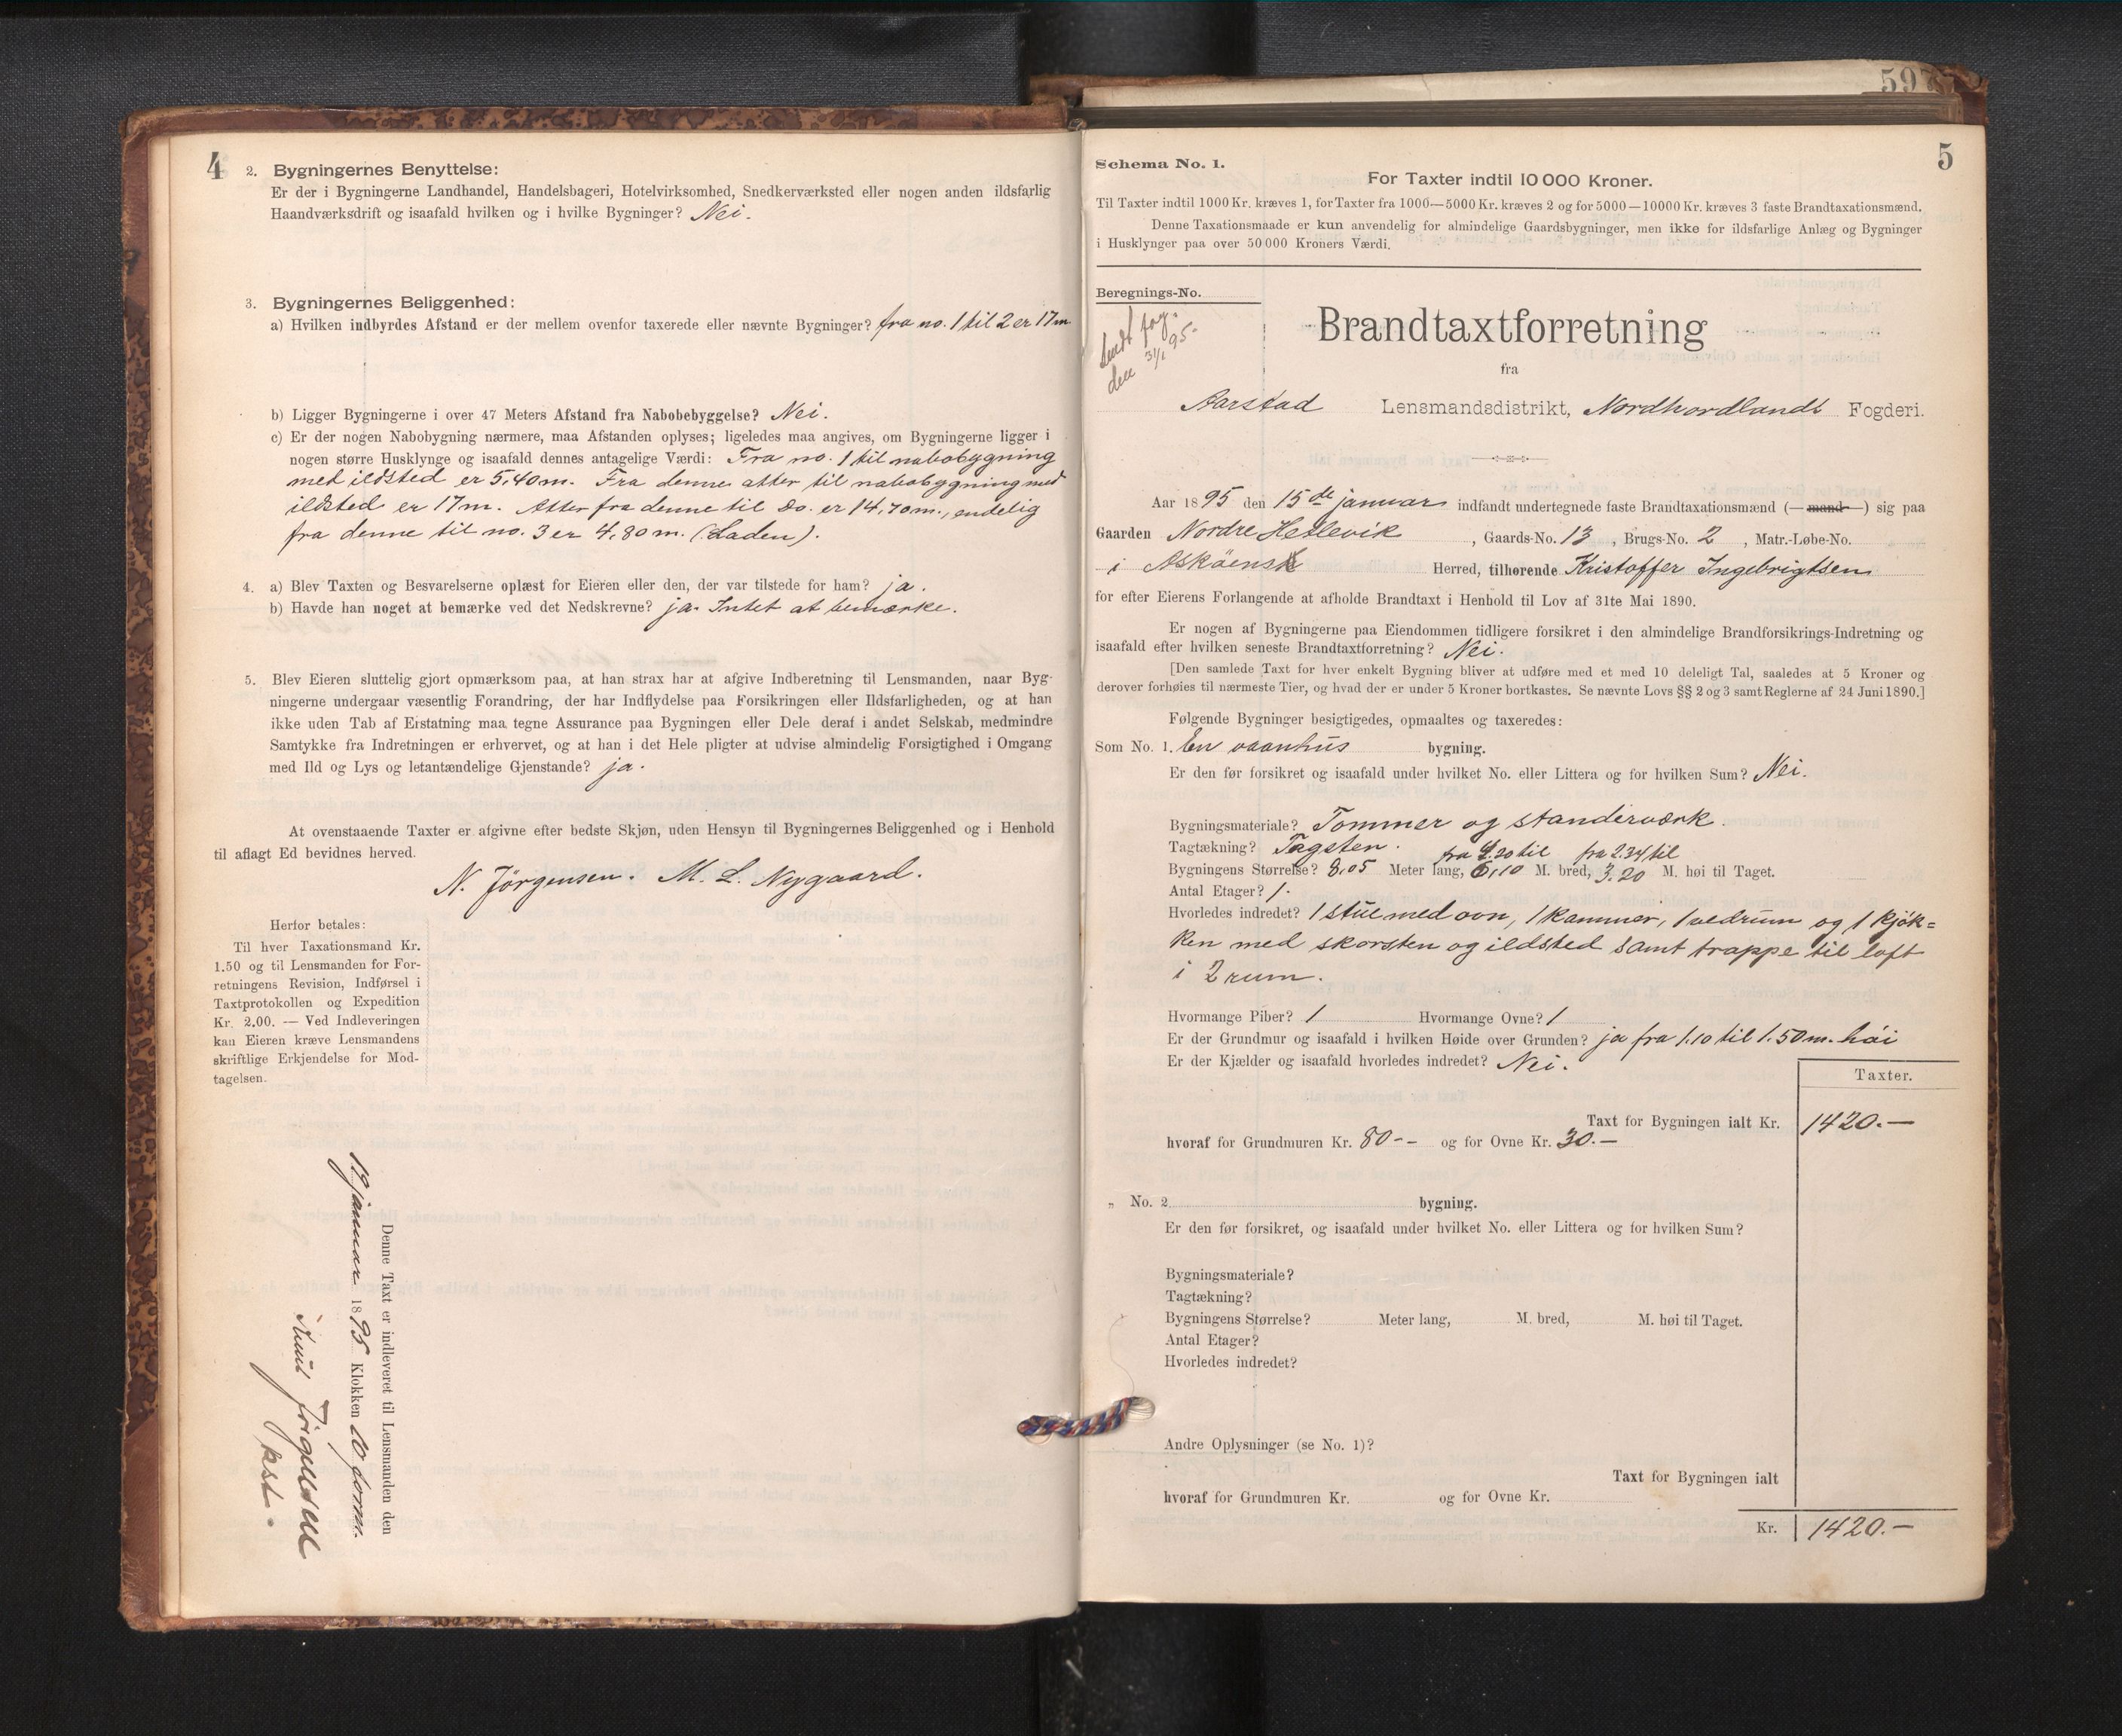 4
2. Bygningernes Benyttelse:
Er der i Bygningerne Landhandel, Handelsbageri, Hotelvirksomhed, Snedkerværksted eller nogen anden ildsfarlig
Haandværksdrift og isaafald hvilken og i hvilke Bygninger? Nei.
3. Bygningernes Beliggenhed:
a) Hvilken indbyrdes Afstand er der mellem ovenfor taxerede eller nævnte Bygninger? fra no. 1 til 2 er 17 m
b) Ligger Bygningerne i over 47 Meters Afstand fra Nabobebyggelse? Nei.
c) Er der nogen Nabobygning nærmere, maa Afstanden oplyses; ligeledes maa angives, om Bygningerne ligger i
nogen større Husklynge og isaafald dennes antagelige Værdi: Fra no. 1 til nabobygning
med ildsted er 5,40 m. Fra denne atter til nabobygning med
ildsted er 17 m. Atter fra denne til do. er 14,70 m., endelig
fra denne til no. 3 er 4,80 m. (Laden).
4. a) Blev Taxten og Besvarelserne oplæst for Eieren eller den, der var tilstede for ham? ja.
b) Havde han noget at bemærke ved det Nedskrevne? ja. Intet at bemærke.
5. Blev Eieren sluttelig gjort opmærksom paa, at han strax har at afgive Indberetning til Lensmanden, naar Byg-
ningerne undergaar væsentlig Forandring, der har Indflydelse paa Forsikringen eller Ildsfarligheden, og at han
ikke uden Tab af Erstatning maa tegne Assurance paa Bygningen eller Dele deraf i andet Selskab, medmindre
Samtykke fra Indretningen er erhvervet, og at han i det Hele pligter at udvise almindelig Forsigtighed i Omgang
med Ild og Lys og letantændelige Gjenstande? ja.
At ovenstaaende Taxter er afgivne efter bedste Skjøn, uden Hensyn til Bygningernes Beliggenhed og i Henhold
til aflagt Ed bevidnes herved.
N. Jörgensen. M. L. Nygaard.
Herfor betales:
Til hver Taxationsmand Kr.
1.50 og til Lensmanden for For-
retningens Revision, Indførsel i
Taxtprotokollen og Expedition
Kr. 2.00. — Ved Indleveringen
kan Eieren kræve Lensmandens
skriftlige Erkjendelse for Mod-
tagelsen.
Denne Taxt er indleveret til Lensmanden den
19 januar 1895 Klokken 10 form.
Knut Jörgensen
kst.
597
5
Schema No. 1.
For Taxter indtil 10 000 Kroner.
Til Taxter indtil 1000 Kr. kræves 1, for Taxter fra 1000—5000 Kr. kræves 2 og for 5000—10000 Kr. kræves 3 faste Brandtaxationsmænd.
Denne Taxationsmaade er kun anvendelig for almindelige Gaardsbygninger, men ikke for ildsfarlige Anlæg og Bygninger
i Husklynger paa over 50 000 Kroners Værdi.
Beregnings-No.
Sendt fog.
den 31/1 95.
Brandtaxtforretning
fra
Aarstad Lensmandsdistrikt, Nordhordlands Fogderi.
Aar 1895 den 15de januar indfandt undertegnede faste Brandtaxationsmænd (—mand—) sig paa
Gaarden Nordre Hetlevik, Gaards-No. 13, Brugs-No. 2, Matr.-Løbe-No.
i Asköens Herred, tilhørende Kristoffer Ingebrigtsen
for efter Eierens Forlangende at afholde Brandtaxt i Henhold til Lov af 31te Mai 1890.
Er nogen af Bygningerne paa Eiendommen tidligere forsikret i den almindelige Brandforsikrings-Indretning og
isaafald efter hvilken seneste Brandtaxtforretning? Nei.
[Den samlede Taxt for hver enkelt Bygning bliver at udføre med et med 10 deleligt Tal, saaledes at 5 Kroner og
derover forhøies til nærmeste Tier, og hvad der er under 5 Kroner bortkastes. Se nævnte Lovs §§ 2 og 3 samt Reglerne af 24 Juni 1890.]
Følgende Bygninger besigtigedes, opmaaltes og taxeredes:
Som No. 1. En vaanhus bygning.
Er den før forsikret og isaafald under hvilket No. eller Littera og for hvilken Sum? Nei.
Bygningsmateriale? Tømmer og standerværk
Tagtækning? Tagsten.
fra 4.20 til fra 2.34 til
Bygningens Størrelse? 8,05 Meter lang, 6,10 M. bred, 3.20 M. høi til Taget.
Antal Etager? 1.
Hvorledes indredet? 1 stue med ovn, 1 kammer, 1 vedrum og 1 kjök=
ken med skorsten og ildsted samt trappe til loft
i 2 rum.
Hvormange Piber? 1 Hvormange Ovne? 1
Er der Grundmur og isaafald i hvilken Høide over Grunden? ja fra 1.10 til 1.50 m. höi
Er der Kjælder og isaafald hvorledes indredet? Nei.
Taxter.
Taxt for Bygningen ialt Kr. 1420.—
hvoraf for Grundmuren Kr. 80-- og for Ovne Kr. 30.—
„ No. 2 bygning.
Er den før forsikret, og isaafald under hvilket No. eller Littera og for hvilken Sum?
Bygningsmateriale?
Tagtækning?
Bygningens Størrelse? Meter lang, M. bred, M. høi til Taget.
Antal Etager?
Hvorledes indredet?
Andre Oplysninger (se No. 1)?
Taxt for Bygningen ialt
hvoraf for Grundmuren Kr. og for Ovne Kr.
Kr. 1420.—